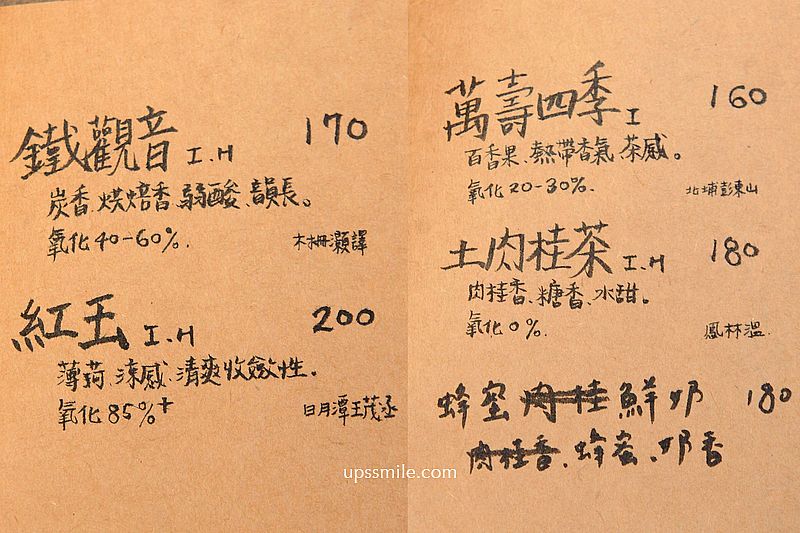 鐵觀音 I.H 170
炭香、烘焙香、弱酸、韻長。
氧化40-60%. 木柵灝譯
紅玉 I.H 200
薄荷、涼感、清爽收斂性.
氧化85%+ 日月潭王茂丞
萬壽四季 I 160
百香果、熱帶香氣、茶感。
氧化20-30%. 北埔彭東山
土肉桂茶 I.H 180
肉桂香、糖香、水甜。
氧化0%. 鳳林溫
蜂蜜肉桂鮮奶 180
肉桂香、蜂蜜、奶香
upssmile.com